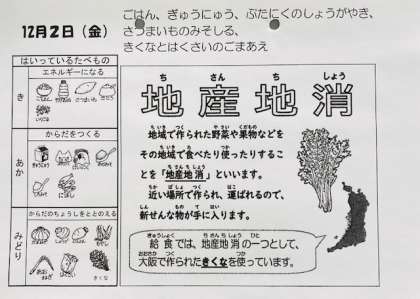 12月2日（金）
ごはん、ぎゅうにゅう、ぶたにくのしょうがやき、
さつまいものみそしる、
きくなとはくさいのごまあえ
はいっているたべもの
エネルギーになる
き
からだをつくる
あか
からだのちょうしをととのえる
みどり
きくな
地産地消
ち さん ち しょう
地域で作られた野菜や果物などを
その地域で食べたり使ったりするこ
とを「地産地消」といいます。
近い場所で作られ、運ばれるので、
新せんな物が手に入ります。
給食では、地産地消の一つとして、
大阪で作られたきくなを使っています。